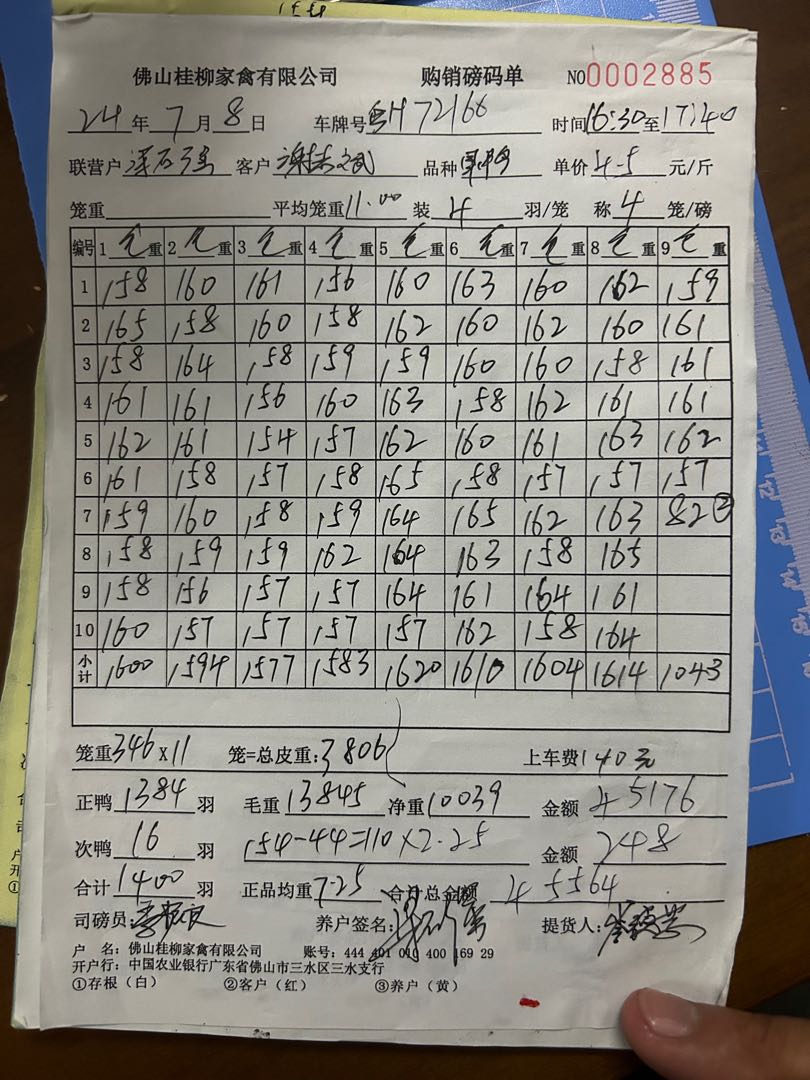 佛山桂柳家禽有限公司 购销磅码单 NO0002885
24年7月8日 车牌号 H72166 时间16:30至17:40
联营户 客户 品种 单价4.5元/斤
笼重 平均笼重11.00 装4羽/笼 称4笼/磅
编号 1毛重 2毛重 3毛重 4毛重 5毛重 6毛重 7毛重 8毛重 9毛重
1 158 160 161 156 160 163 160 162 159
2 165 158 160 158 162 160 162 160 161
3 158 164 158 159 159 160 160 158 161
4 161 161 156 160 163 158 162 161 161
5 162 161 154 157 162 160 161 163 162
6 161 158 157 158 165 158 157 157 157
7 159 160 158 159 164 165 162 163 82②
8 158 159 159 162 164 163 158 165
9 158 156 157 157 164 161 164 161
10 160 157 157 157 157 162 158 164
小计 1600 1594 1577 1583 1620 1610 1604 1614 1043
笼重346x11 笼=总皮重:3806 上车费140元
正鸭1384羽 毛重13845 净重10039 金额45176
次鸭16羽 154-44=110×2.25 金额248
合计1400羽 正品均重7.25 合计总金额45564
司磅员: 养户签名: 提货人:
户 名: 佛山桂柳家禽有限公司 账号: 444 401 010 400 169 29
开户行: 中国农业银行广东省佛山市三水区三水支行
①存根(白) ②客户(红) ③养户(黄)